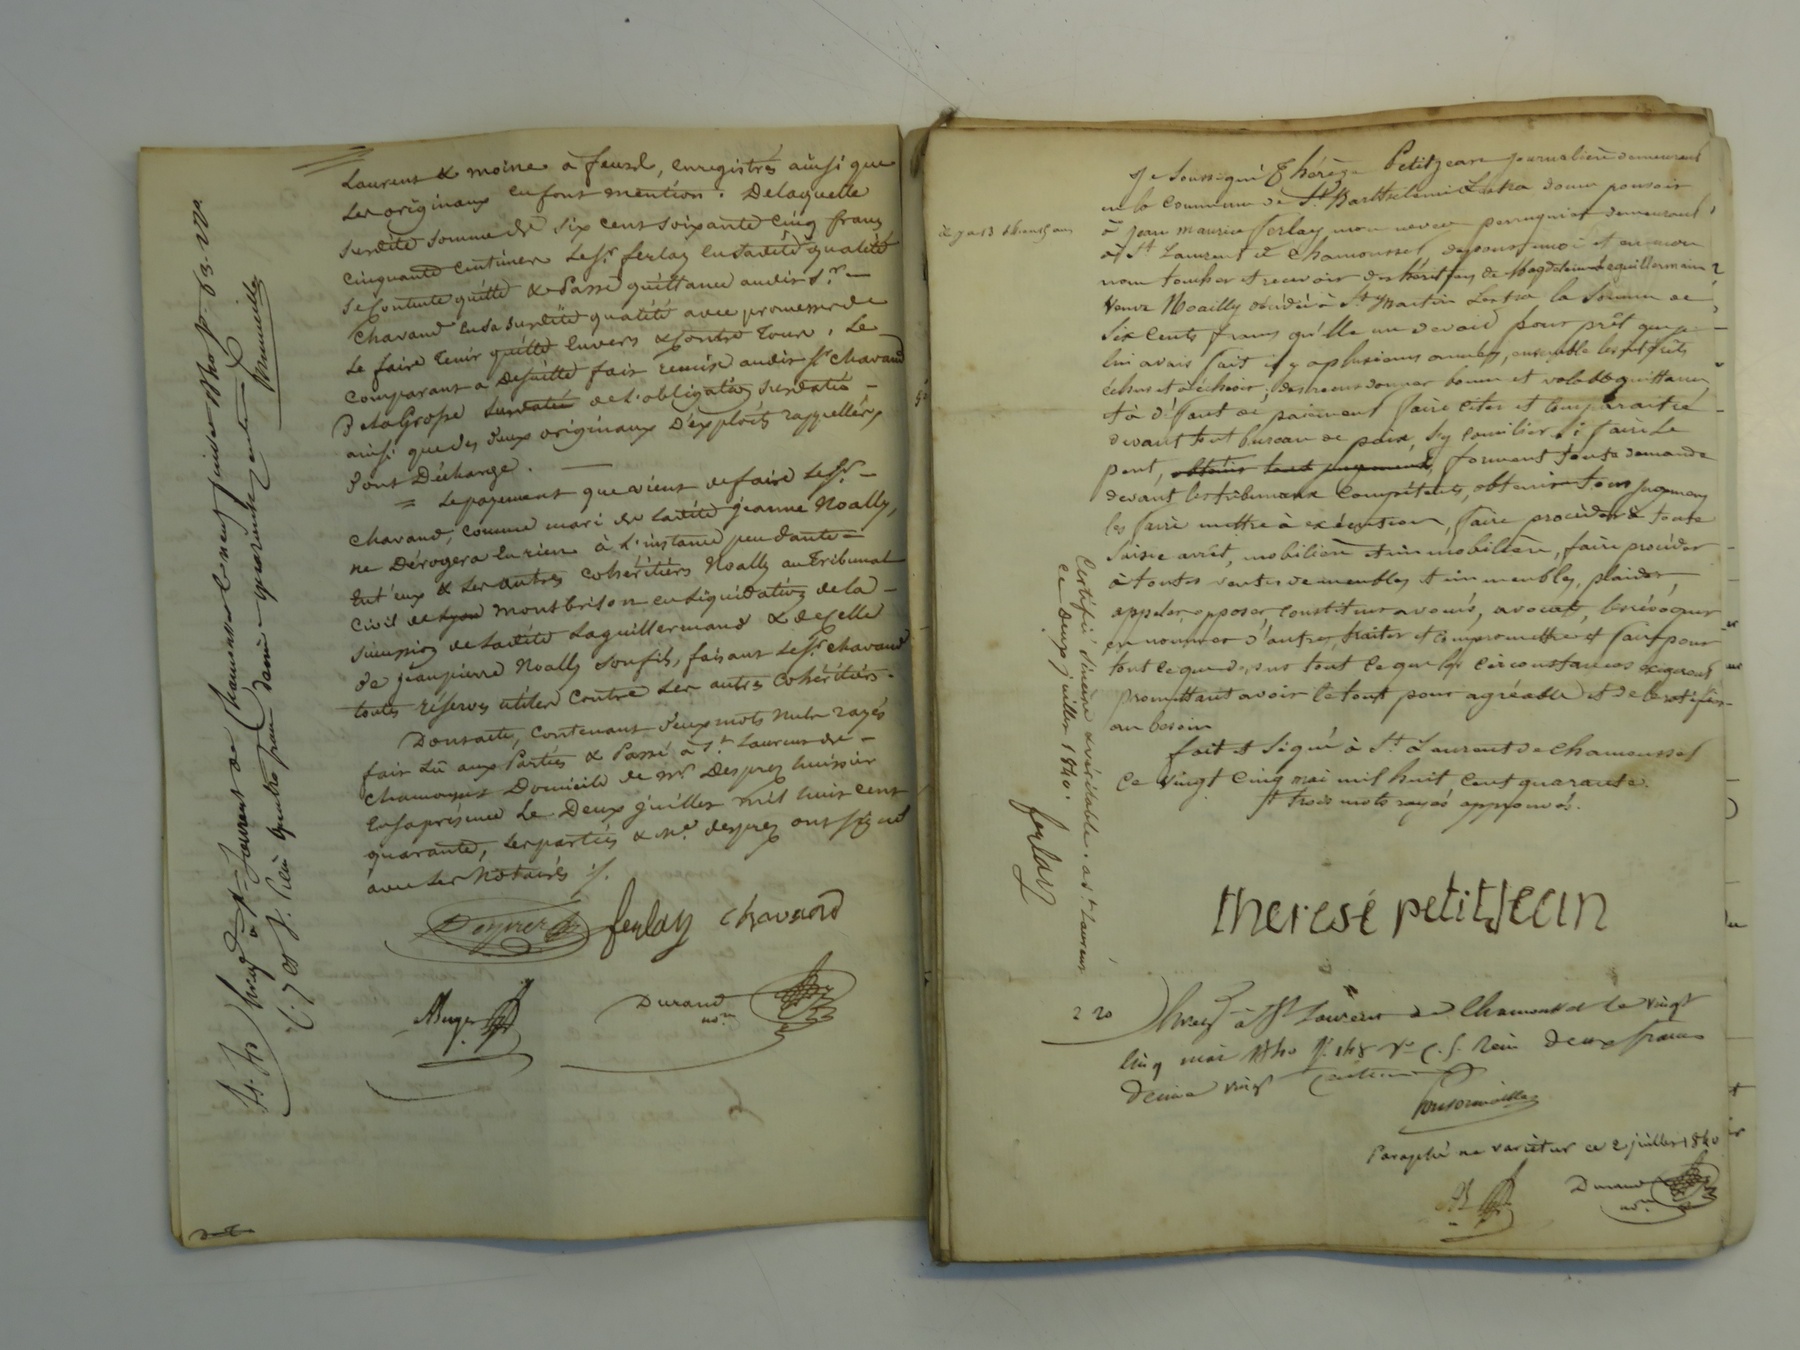 Laurent & moine à feurs, enregistrés ainsi que
Les originaux en font mention. Delaquelle
susdite somme de six cent soixante cinq francs
cinquante centimes Le Sr. ferlay en sadite qualité
se contente quitte & Passe quittance audit Sr. —
Chavand en sa susdite qualité avec promesse de
Le faire tenir quitte envers & contre tous. Le
comparant a desuitte fait remise audit Sr. chavand
De la Grosse susdatée de L'obligation susdatée —
ainsi que des deux originaux D'exploits rappellés,
dont Décharge. —
= Le payement que vient de faire Le Sr. —
chavand, comme mari de Ladite jeanne Noally,
ne Derogera en rien à L'instance pendante =
Entr'eux & Les autres cohéritiers Noally au Tribunal
civil de Lyon montbrison en Liquidation de la —
succession de Ladite Laguillermand & de Celle
de jeanpierre Noally son fils, faisant Le Sr. chavand
toutes réserves utiles contre Les autres Cohéritiers.
Dont acte, contenant deux mots nuls rayés
fait Lû aux Parties & Passé à St. Laurent de —
chamousset Domicile de Mr. Desprez huissier
En sa présence Le Deux juillet mil huit cent
quarante, Les parties & Mr. desprez ont signé
avec Les Notaires ./.
Desprez ferlay chavand
Durand
nore
Je soussigné Thérèze Petitjean journalière demeurant
en la commune de St. Barthelemi Lestra donne pouvoir
à jean maurice ferlay mon neveu perruquier demeurant
à St. Laurent de Chamousset de pour moi et en mon
nom toucher et recevoir des héritiers de Magdelaine Laguillermain
Veuve Noailly décédée à St. Martin Lestra la somme de
six cents francs qu'elle me devait pour prêt que je
lui avais fait il y a plusieurs années, ensemble les intérêts
échus et à échoir; des reçus donner bonne et valable quittance
et à défaut de paiement faire citer et comparaitre
devant tout bureau de paix, s'y concilier si faire se
peut, obtenir tout jugement, former toute demande
devant les tribunaux compétents, obtenir tous jugemens
les faire mettre à exécution, faire procéder à toute
saisie arrêt, mobilière et immobilière, faire procéder
à toutes ventes de meubles et immeubles, plaider,
appeler, opposer, constituer avoués, avocats, les révoquer
en nommer d'autres, traiter et compromettre et faire pour
tout ce que dessus tout ce que les circonstances exigeront
promettant avoir le tout pour agréable et de le ratifier
au besoin
fait et signé à St. Laurent de Chamousset
ce vingt cinq mai mil huit cent quarante.
et trois mots rayés approuvés.
therese petitJean
Certifié sincère & véritable. a St. Laurent
ce deux juillet 1840.
ferlay
2 20
Enreg. à St. Laurent de Chamousset le vingt
cinq mai 1840 fo. 148 Vo c. 5. Reçu deux francs
decime vingt centimes
Paraphé ne varietur ce 2 juillet 1840
Durand
nore